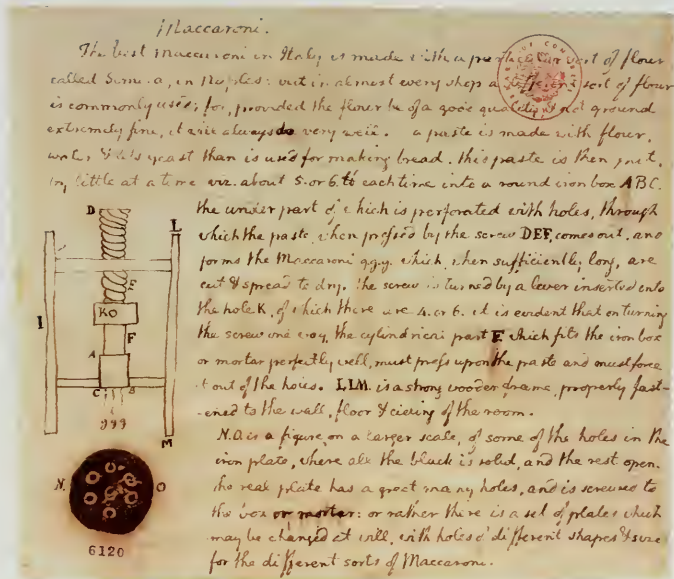 Maccaroni.
The best maccaroni in Italy is made with a particular sort of flour
called Semola, in Naples: but in almost every shop a different sort of flour
is commonly used; for, provided the flour be of a good quality & not ground
extremely fine, it will always do very well. a paste is made with flour,
water & less yeast than is used for making bread. this paste is then put,
by little at a time viz. about 5. or 6. ℔ each time into a round iron box ABC.
the under part of which is perforated with holes, through
which the paste, when pressed by the screw DEF, comes out, and
forms the Maccaroni g.g.g. which, when sufficiently long, are
cut & spread to dry. the screw is turned by a lever inserted into
the hole K, of which there are 4. or 6. it is evident that on turning
the screw one way, the cylindrical part F. which fits the iron box
or mortar perfectly well, must press upon the paste and must force
it out of the holes. LLM. is a strong wooden frame, properly fast-
-ened to the wall, floor & cieling of the room.
N.O. is a figure, on a larger scale, of some of the holes in the
iron plate, where all the black is solid, and the rest open.
the real plate has a great many holes, and is screwed to
the box or mortar: or rather there is a set of plates which
may be changed at will, with holes of different shapes & sizes
for the different sorts of Maccaroni.
D
L
E
I
KO
F
A
C
B
ggg
M
N.
O
6120